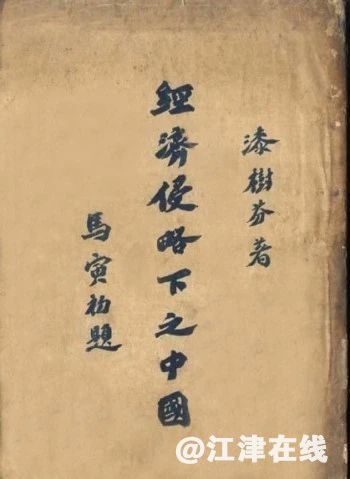 漆樹芬著
經濟侵略下之中國
馬寅初題
@江津在线